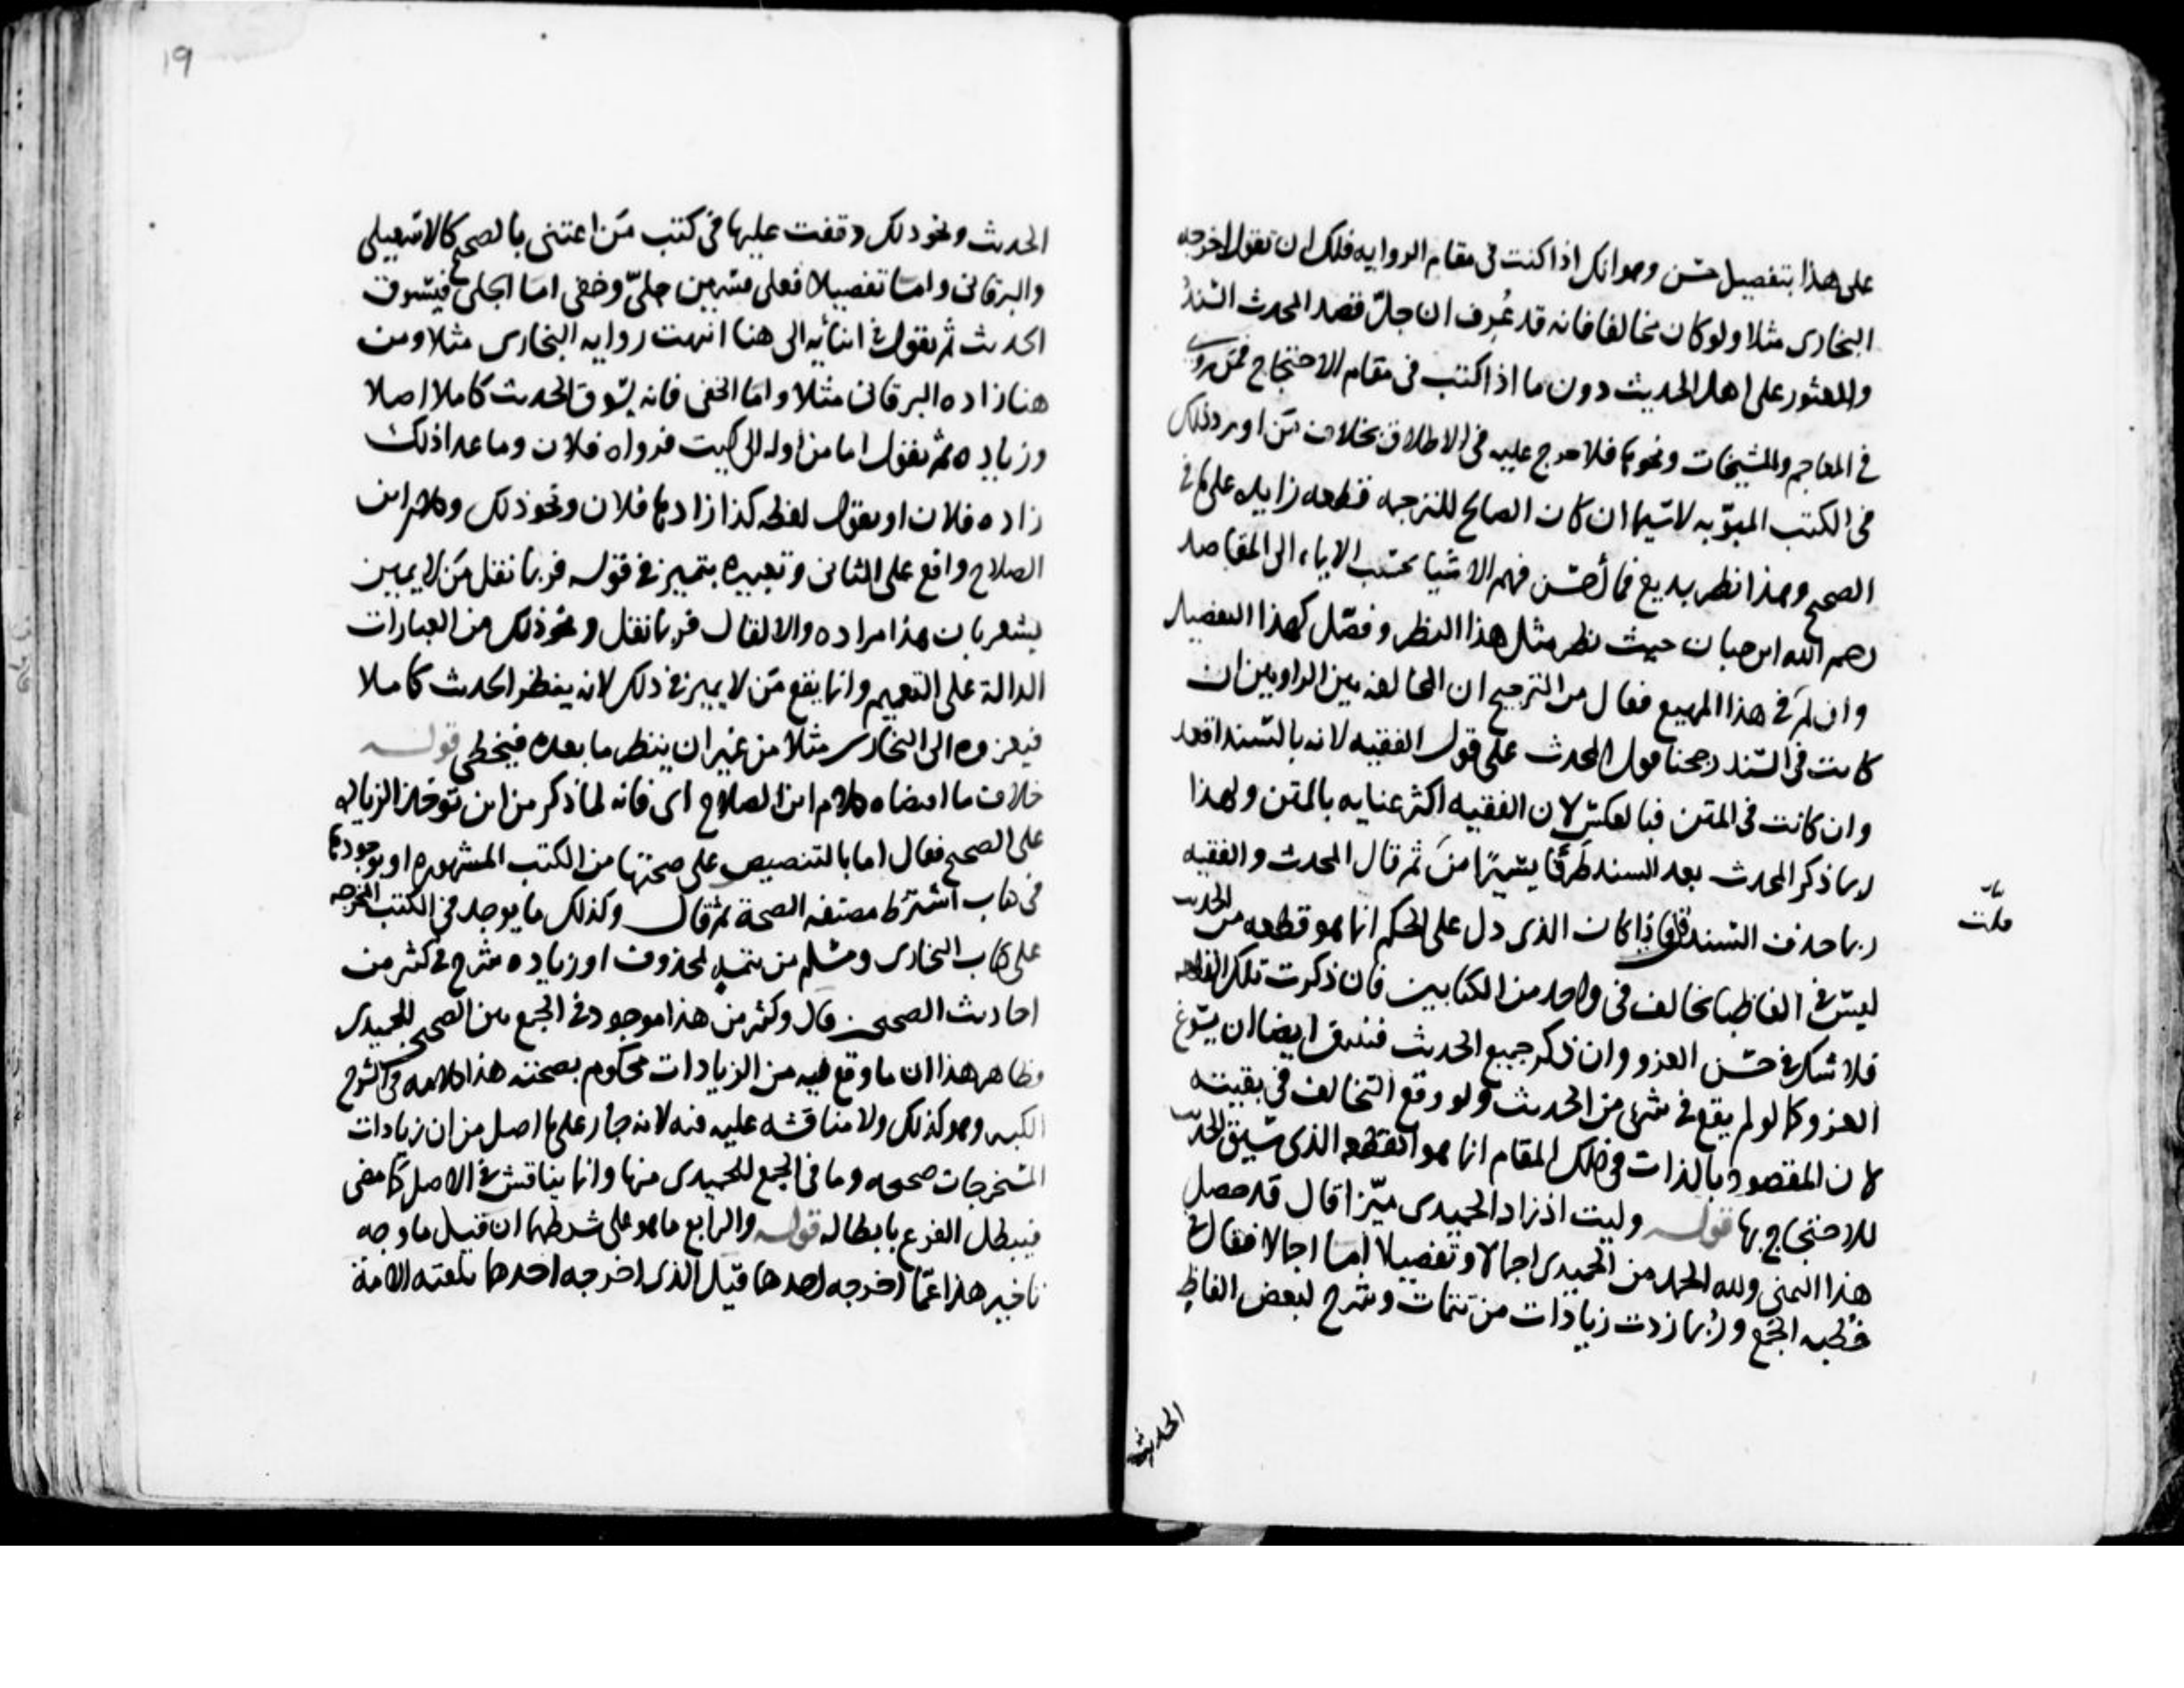 على هذا بتفصيل حسن وهو انك اذا كنت فى مقام الروايه فلك ان تقول اخرجه
البخارى مثلا ولو كان مخالفا فانه قد عُرف ان جلّ قصد المحدث السندُ
والعثور على اصل الحديث دون ما اذا كنت فى مقام الاحتجاج فمن روى
فى المعاجم والمشيخات ونحوها فلا حرج عليه فى الاطلاق بخلاف من اورد ذلك
فى الكتب المبوّبه لاسيما ان كان الصالح للترجمه قطعه زايده على ما فى
الصحيح وهذا نظر بديع فما أحسن فهم الاشيا بحسب الايماء الى المقاصد
رحم الله ابن حبان حيث نظر مثل هذا النظر وفصّل كهذا التفصيل
وان لم فى هذا المهيع فقال من الترجيح ان المخالفه بين الراويين ان
كانت فى السند رجحنا قول المحدث على قول الفقيه لانه بالسند اقعد
وان كانت فى المتن فبالعكس لان الفقيه اكثر عنايه بالمتن ولهذا
ربما ذكر المحدث بعد السند طَرَفًا يسيرًا من ثم قال المحدث والفقيه
ربما حذف السند قلت فاذا كان الذى دل على الحكم انما هو قطعه من الحديث
ليس فى الفاظها تخالف فى واحد من الكتابين فان ذكرت تلك القطعه
فلا شك فى حسن العزو وان ذكر جميع الحديث فيتبقى ايضا ان يسوغ
العزو كما لو لم يقع فى شى من الحديث ولو وقع التخالف فى بقيته
لان المقصود بالذات فى ذلك المقام انما هو القطعه الذى سيق الحديث
للاحتجاج بها قوله وليت اذ زاد الحميدى ميّزا قال قد حصل
هذا التمنى ولله الحمد من الحميدى اجمالا وتفصيلا اما اجمالا فقال فى
خطبه الجمع وربما زدت زيادات من تتمات وشرح لبعض الفاظ
الحديث
19
الحديث ونحو ذلك وقفت عليها فى كتب من اعتنى بالصحيح كالاسمعيلى
والبرقانى واما تفصيلا فعلى قسمين جلىّ وخفى اما الجلى فيسوق
الحديث ثم يقول فى اثنائه الى هنا انتهت روايه البخارى مثلا ومن
هنا زاده البرقانى مثلا واما الخفى فانه يسوق الحديث كاملا اصلا
وزياده ثم يقول اما من اوله الى كيت فرواه فلان وما عدا ذلك
زاده فلان او يقول لفظه كذا زادها فلان ونحو ذلك وكلام ابن
الصلاح واقع على الثانى وتعبيره بتمييز فى قوله فربما نقل من لا يميز
يشعر بان هذا مراده والا لقال فربما نقل ونحو ذلك من العبارات
الدالة على التعميم وانما يقع من لا يميز فى ذلك لانه ينظر الحديث كاملا
فيعزوه الى البخارى مثلا من غير ان ينظر ما بعده فيخطى قوله
خلاف ما اقتضاه كلام ابن الصلاح اى فانه لما ذكر من اين توخذ الزياده
على الصحيح فقال اما بالتنصيص على صحتها من الكتب المشهوره او بوجودها
فى كتاب اشترط مصنفه الصحة ثم قال وكذلك ما يوجد فى الكتب المخرجه
على كتاب البخارى ومسلم من تتمه لمحذوف او زياده شرح فى كثير من
احاديث الصحيحين قال وكثير من هذا موجود فى الجمع بين الصحيحين للحميدى
وظاهر هذا ان ما وقع فيه من الزيادات محكوم بصحته هذا كلامه فى الشرح
الكبير وهو كذلك ولا مناقشه عليه فيه لانه جار على ما اصل من ان زيادات
المستخرجات صحيحه وما فى الجمع للحميدى منها وانما يناقش فى الاصل كما مضى
فيبطل الفرع بابطاله قوله والرابع ما هو على شرطهما ان قيل ما وجه
تاخير هذا عمّا اخرجه احدهما قيل الذى اخرجه احدهما تلقته الامة